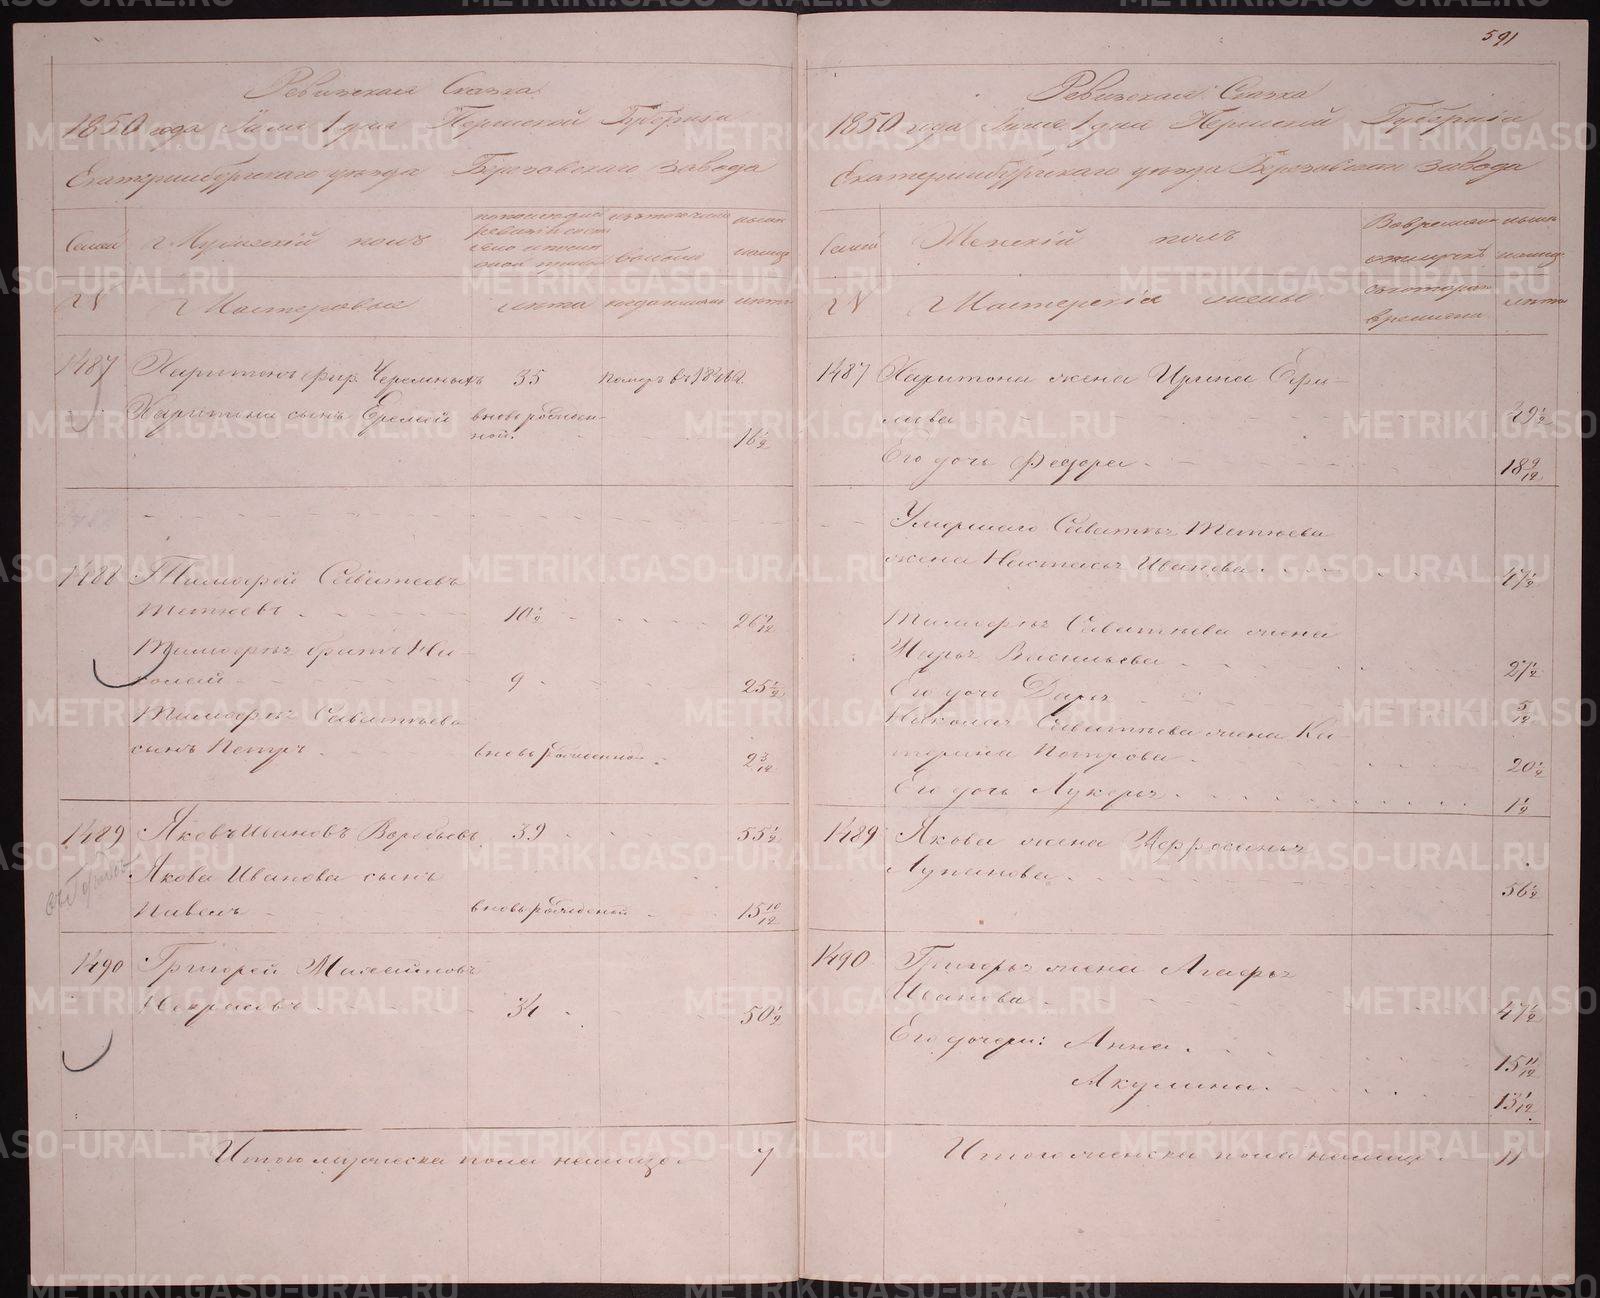 591
Ревизская Сказка
1850 года Июля 1 дня Пермской Губернiи
Екатеринбургскаго уѣзда Березовскаго завода
Семей
Мужескiй полъ
по последней
ревизiи сост
ояло
изъ того числа
выбыло
нынѣ
на лицо
№
Мастеровые
лѣта
когда именно
лѣта
1487
Харитонъ Черемныхъ 35 помер въ 184
Харитона сынъ Еремей вновь рожден-
ной. 16 1/2
1488 Тимофей Саватеевъ
Тетюевъ 10 1/2 26
Тимофея братъ Ни-
колай 9 25 1/2
Тимофея Саватеева
сынъ Петръ вновь рожденной 2 3/12
1489 Яковъ Ивановъ Воробьевъ 39 55 1/2
Якова Иванова сынъ
Павелъ вновь рожденой 15 10/12
1490 Григорей Михайловъ
Некрасовъ 34 50 1/2
Итого мужеска пола налицо 7
Ревизская Сказка
1850 года Июля 1 дня Пермской Губернiи
Екатеринбургскаго уѣзда Березовскаго завода
Семей
Женскiй полъ
Во временной
отлучкѣ
нынѣ
на лицо
№
Мастерскiя жены
съ котораго
времяни
лѣта
1487 Харитона жена Ирина Ефи-
мова 49 1/2
Его дочь Федора 18 9/12
Умершаго Саватея Тетюева
жена Настасья Иванова 47 1/2
Тимофея Саватеева жена
Марья Васильева 27 1/2
Его дочь Дарья 5/12
Николая Саватеева жена Ка-
терина Петрова 20 1/2
Его дочь Лукерья 1 1/2
1489 Якова жена Афросинья
56 1/2
1490 Григорья жена Агафья
Иванова 47 1/2
Его дочери: Анна 15 11/12
Акулина 13 1/12
Итого женска пола налицо 11
METRIKI.GASO-URAL.RU